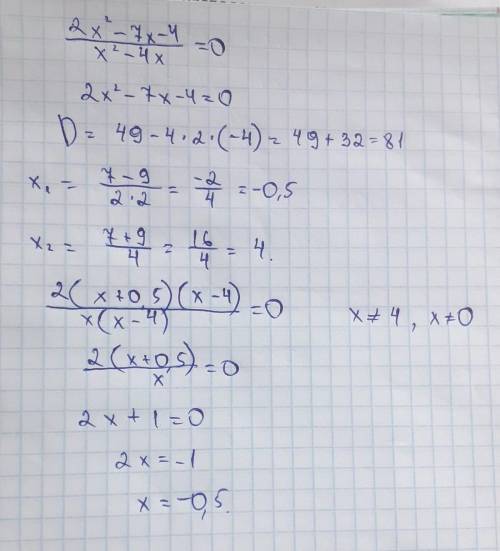 (2x² - 7x - 4)/(x² - 4x) = 0
2x² - 7x - 4 = 0
D = 49 - 4·2·(-4) = 49 + 32 = 81
x₁ = (7 - 9)/(2·2) = (-2)/4 = -0,5
x₂ = (7 + 9)/4 = 16/4 = 4.
(2(x + 0,5)(x - 4))/(x(x - 4)) = 0    x ≠ 4, x ≠ 0
(2(x + 0,5))/x = 0
2x + 1 = 0
2x = -1
x = -0,5.